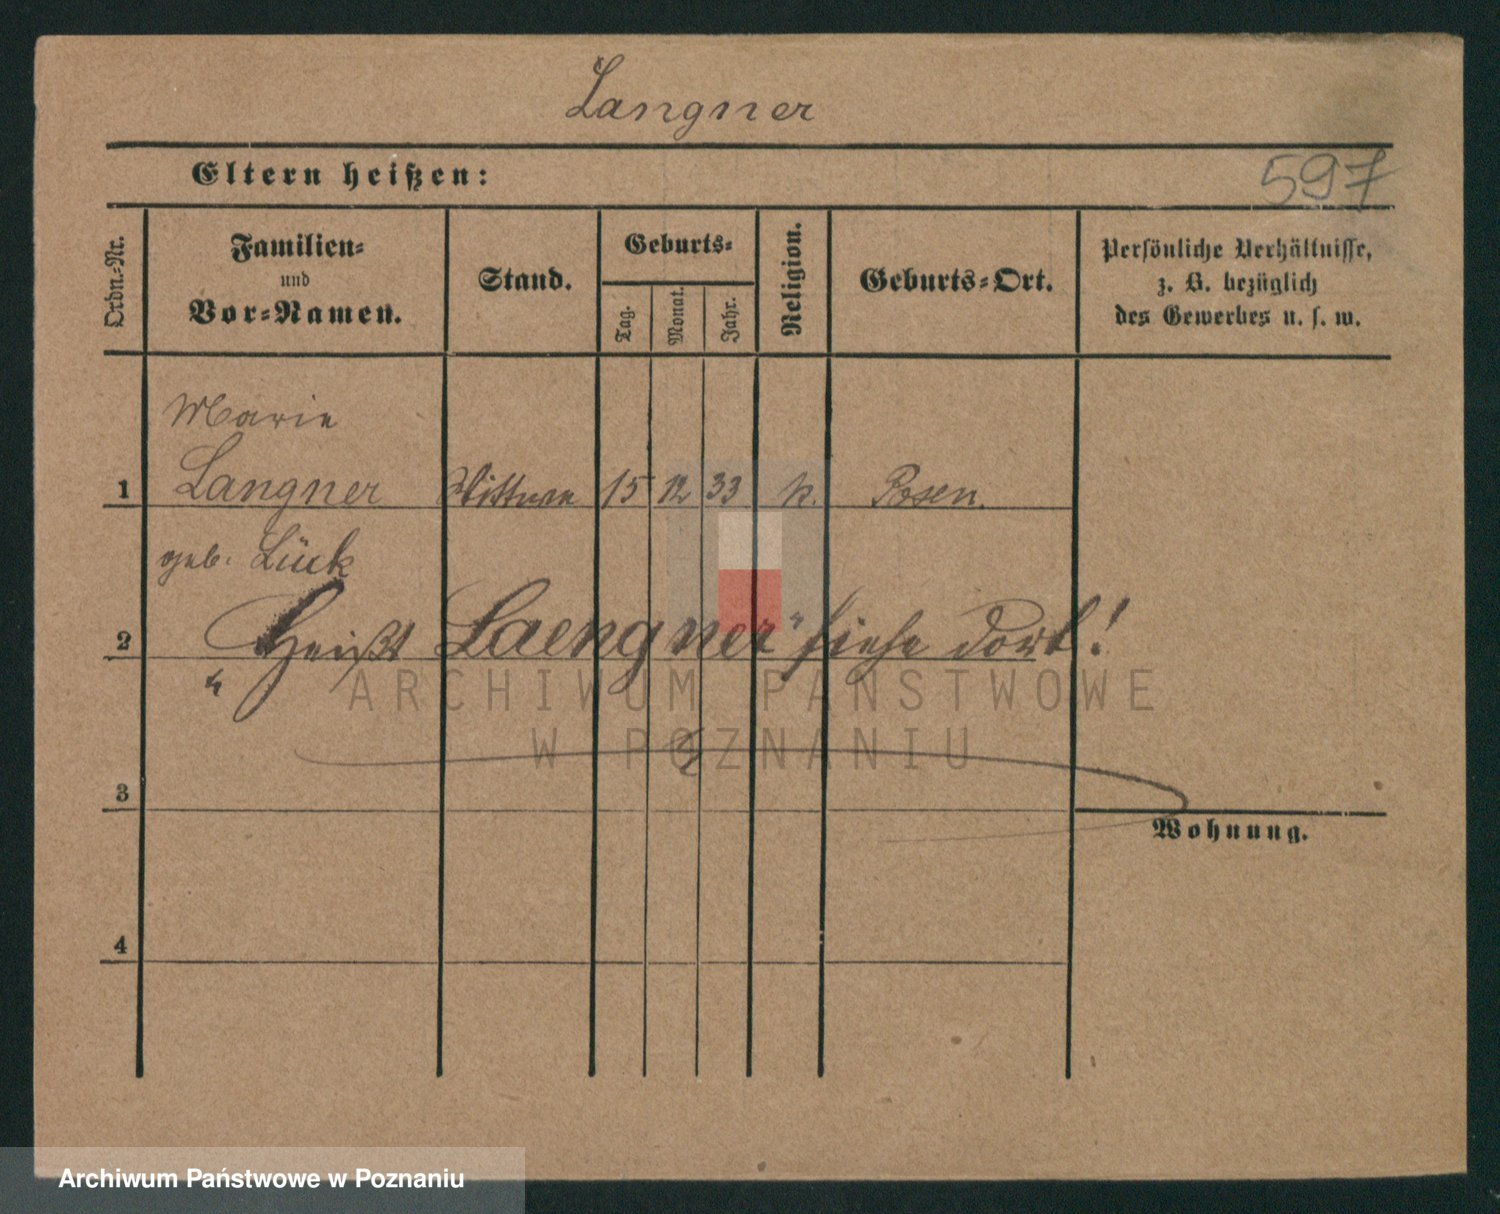 Langner
Eltern heißen:
597
Ordn.-Nr.
Familien-
und
Vor-Namen.
Stand.
Geburts-
Tag.
Monat.
Jahr.
Religion.
Geburts-Ort.
Persönliche Verhältnisse,
z. B. bezüglich
des Gewerbes u. s. w.
Marie
1 Langner Wittwe 15 12 33 k. Posen.
geb. Lück
2 „Heißt Laengner“ siehe dort!
ARCHIWUM PAŃSTWOWE
W POZNANIU
3
Wohnung.
4
Archiwum Państwowe w Poznaniu